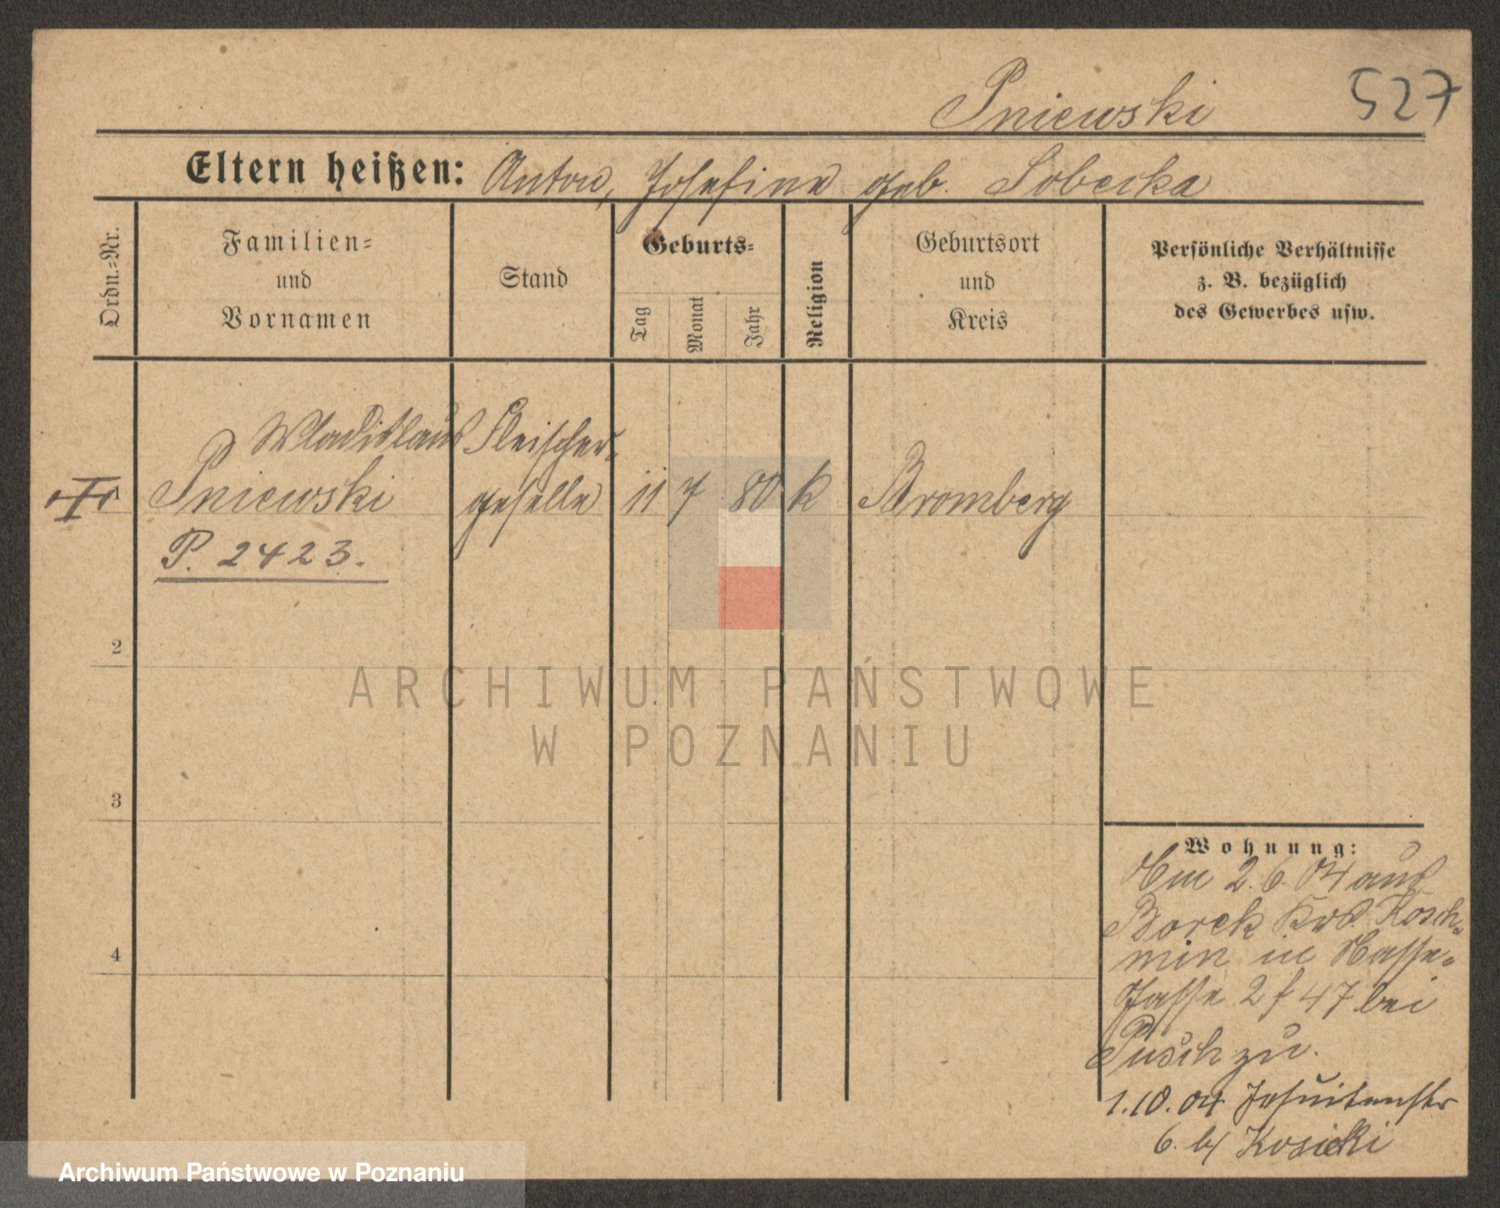 Pniewski 527
Eltern heißen: Anton, Josefine geb. Sobecka
Ordn.=Nr.
Familien=
und
Vornamen
Stand
Geburts=
Tag
Monat
Jahr
Religion
Geburtsort
und
Kreis
Persönliche Verhältnisse
z. B. bezüglich
des Gewerbes usw.
Wladislaus Fleischer-
Pniewski geselle 11 7 80 k Bromberg
P. 2423.
2
3
4
ARCHIWUM PAŃSTWOWE
W POZNANIU
Wohnung:
Am 2.6.04 aus
Borek Krs. Kosch-
min in
Gasse 2 f 47 bei
Pusch zu.
1.10.04 Jesuitenstr
6. b/ Kosicki
Archiwum Państwowe w Poznaniu